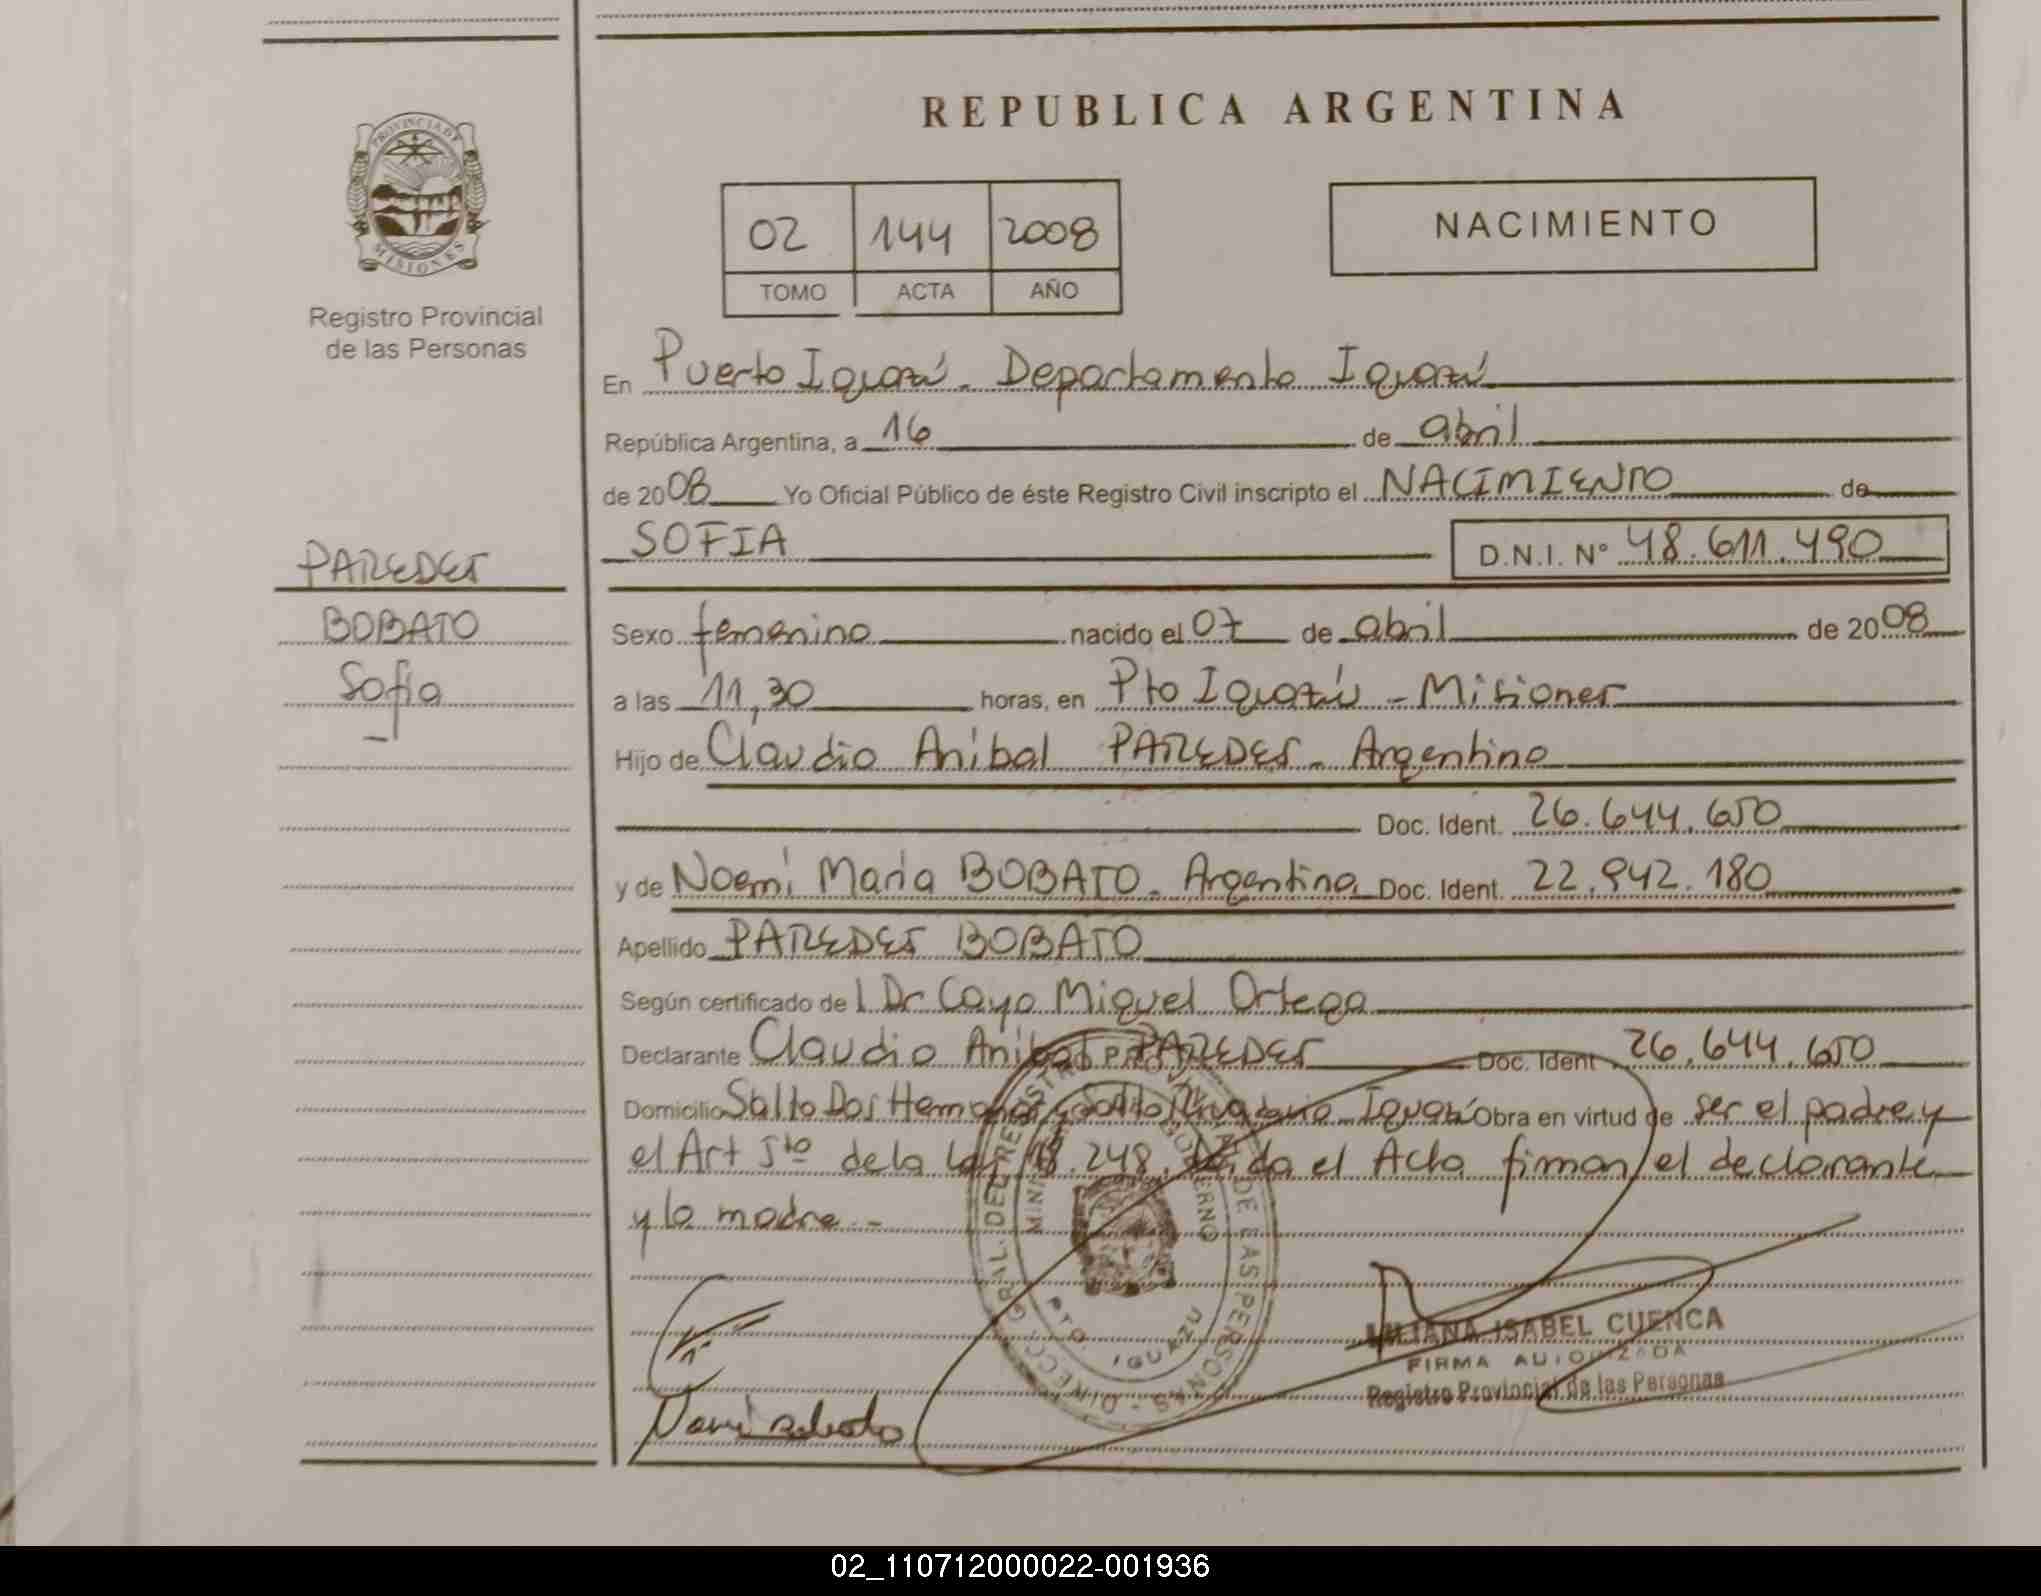 REPUBLICA ARGENTINA
PROVINCIA DE
MISIONES
Registro Provincial
de las Personas
02 144 2008
TOMO ACTA AÑO
NACIMIENTO
En Puerto Iguazú - Departamento Iguazú
República Argentina, a 16 de abril
de 2008 Yo Oficial Público de éste Registro Civil inscripto el NACIMIENTO de
SOFIA D.N.I. N° 48.611.490
PAREDES
BOBATO
Sofia
Sexo femenino nacido el 07 de abril de 2008
a las 11,30 horas, en Pto Iguazú - Misiones
Hijo de Claudio Anibal PAREDES - Argentino
Doc. Ident. 26.644.650
y de Noemi Maria BOBATO - Argentina Doc. Ident. 22.942.180
Apellido PAREDES BOBATO
Según certificado de l Dr Cayo Miguel Ortega
Declarante Claudio Anibal PAREDES Doc. Ident 26.644.650
Domicilio Salto Dos Hermanas y Salto Rivadavia - Iguazú Obra en virtud de ser el padre y
el Art 5to de la Ley 18.248. Leida el Acta firman el declarante
y la madre -
DIRECC. GRAL. DEL REGISTRO PROVINCIAL DE LAS PERSONAS
GOBIERNO
PTO. IGUAZU
LILIANA ISABEL CUENCA
FIRMA AUTORIZADA
Registro Provincial de las Personas
02_110712000022-001936